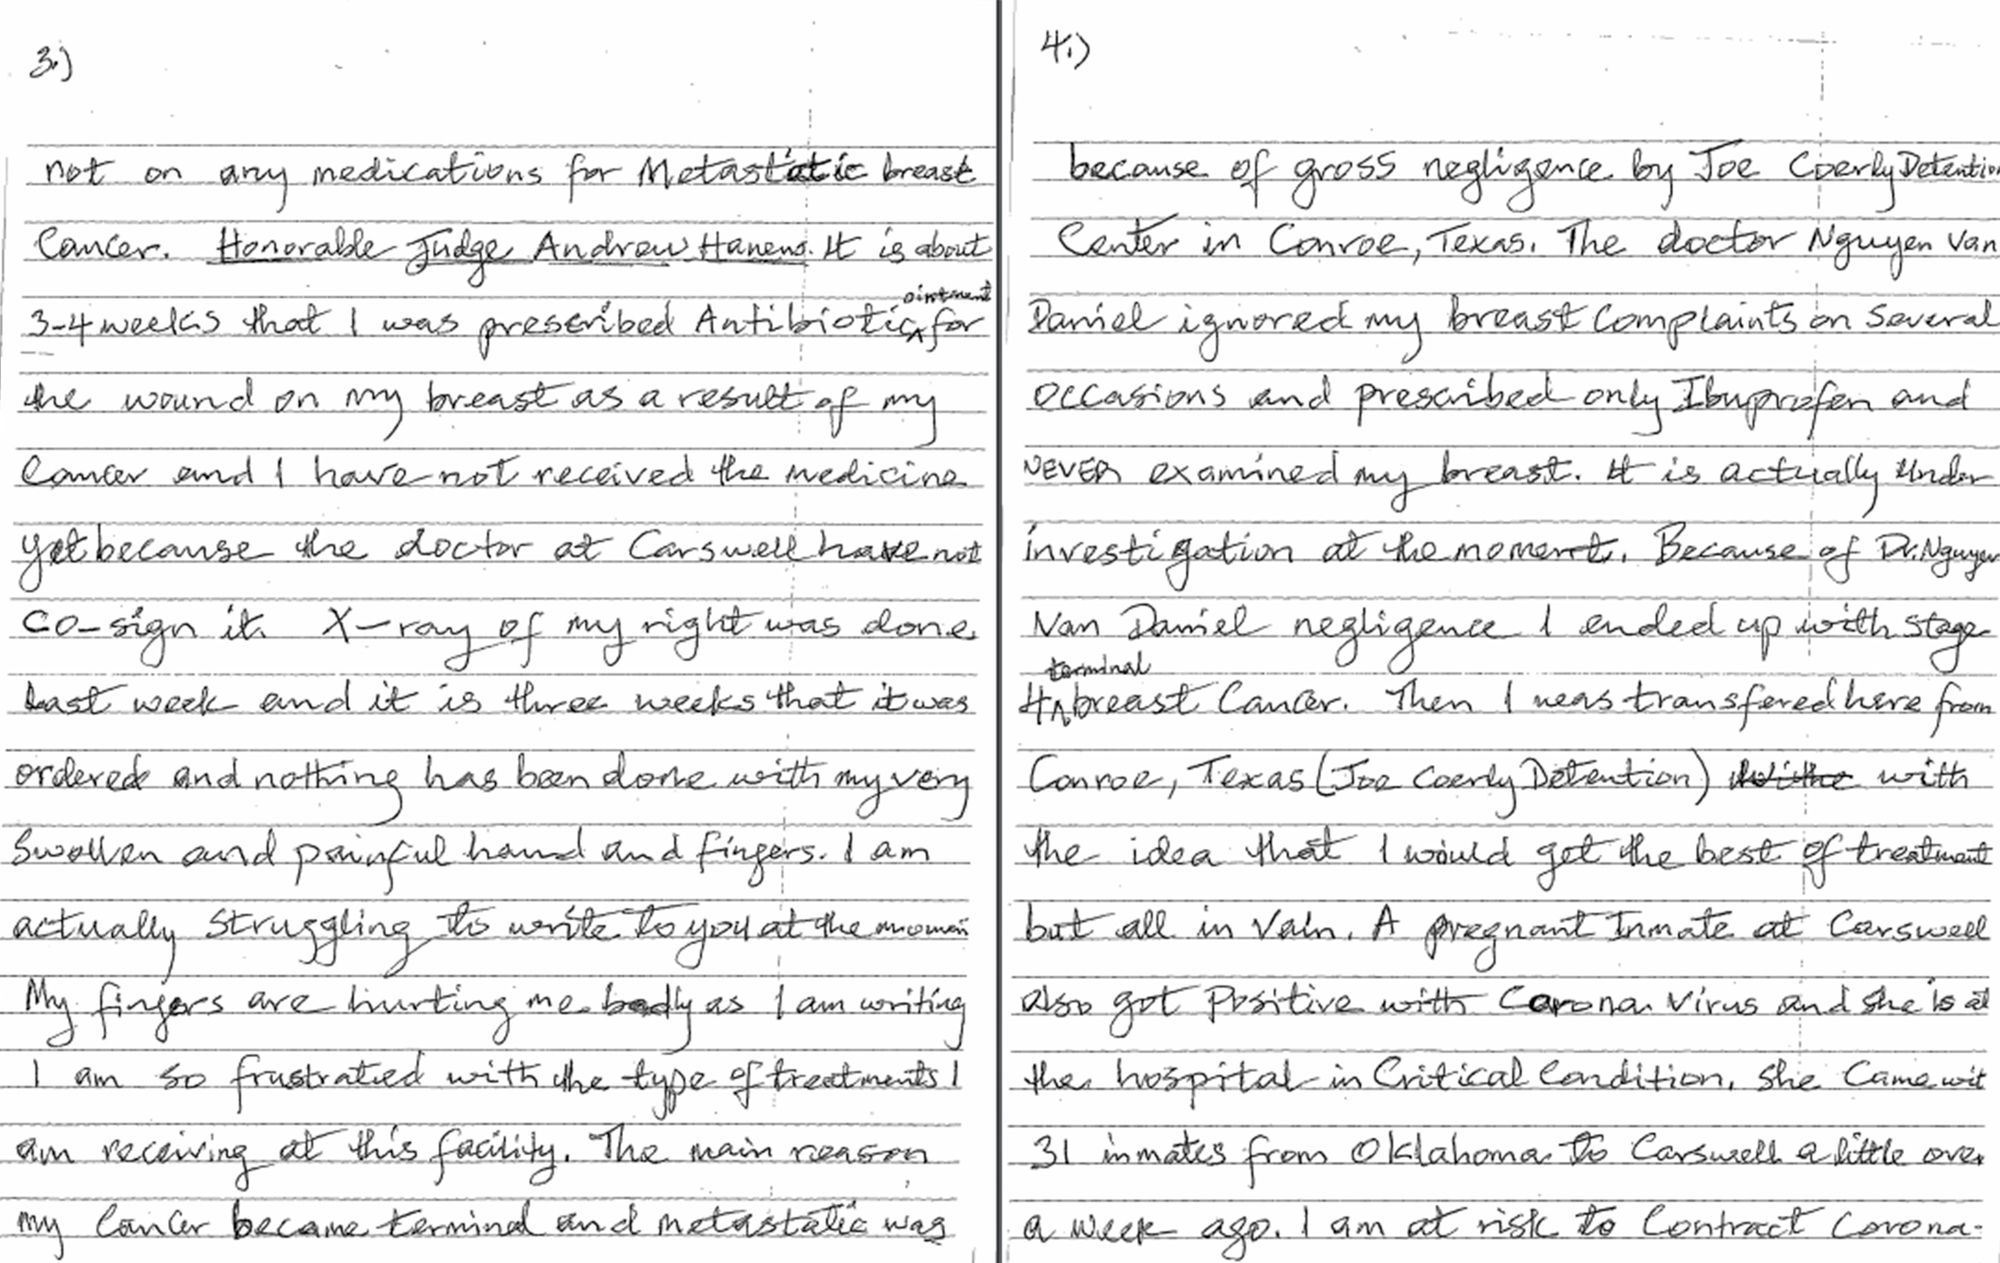 3.)
not on any medications for Metastatic breast
Cancer. Honorable Judge Andrew Hanens. It is about
ointment
3-4 weeks that I was prescribed Antibiotic ^ for
the wound on my breast as a result of my
Cancer and I have not received the medicine
yet because the doctor at Carswell have not
co-sign it. X-ray of my right was done
last week and it is three weeks that it was
ordered and nothing has been done with my very
swollen and painful hand and fingers. I am
actually struggling to write to you at the momen
My fingers are hurting me badly as I am writing
I am so frustrated with the type of treatments I
am receiving at this facility. The main reason
my Cancer became terminal and metastatic was
4.)
because of gross negligence by Joe Coerly Detention
Center in Conroe, Texas. The doctor Nguyen Van
Daniel ignored my breast Complaints on Several
occasions and prescribed only Ibuprofen and
NEVER examined my breast. It is actually under
investigation at the moment. Because of Dr. Nguyen
Van Daniel negligence I ended up with stage
terminal
4 ^ breast Cancer. Then I was transfered here from
Conroe, Texas (Joe Coerly Detention) with
the idea that I would get the best of treatment
but all in Vain. A pregnant Inmate at Carswell
also got Positive with Corona Virus and she is at
the hospital in Critical Condition. She Came wit
31 inmates from Oklahoma to Carswell a little over
a week ago. I am at risk to Contract Corona-